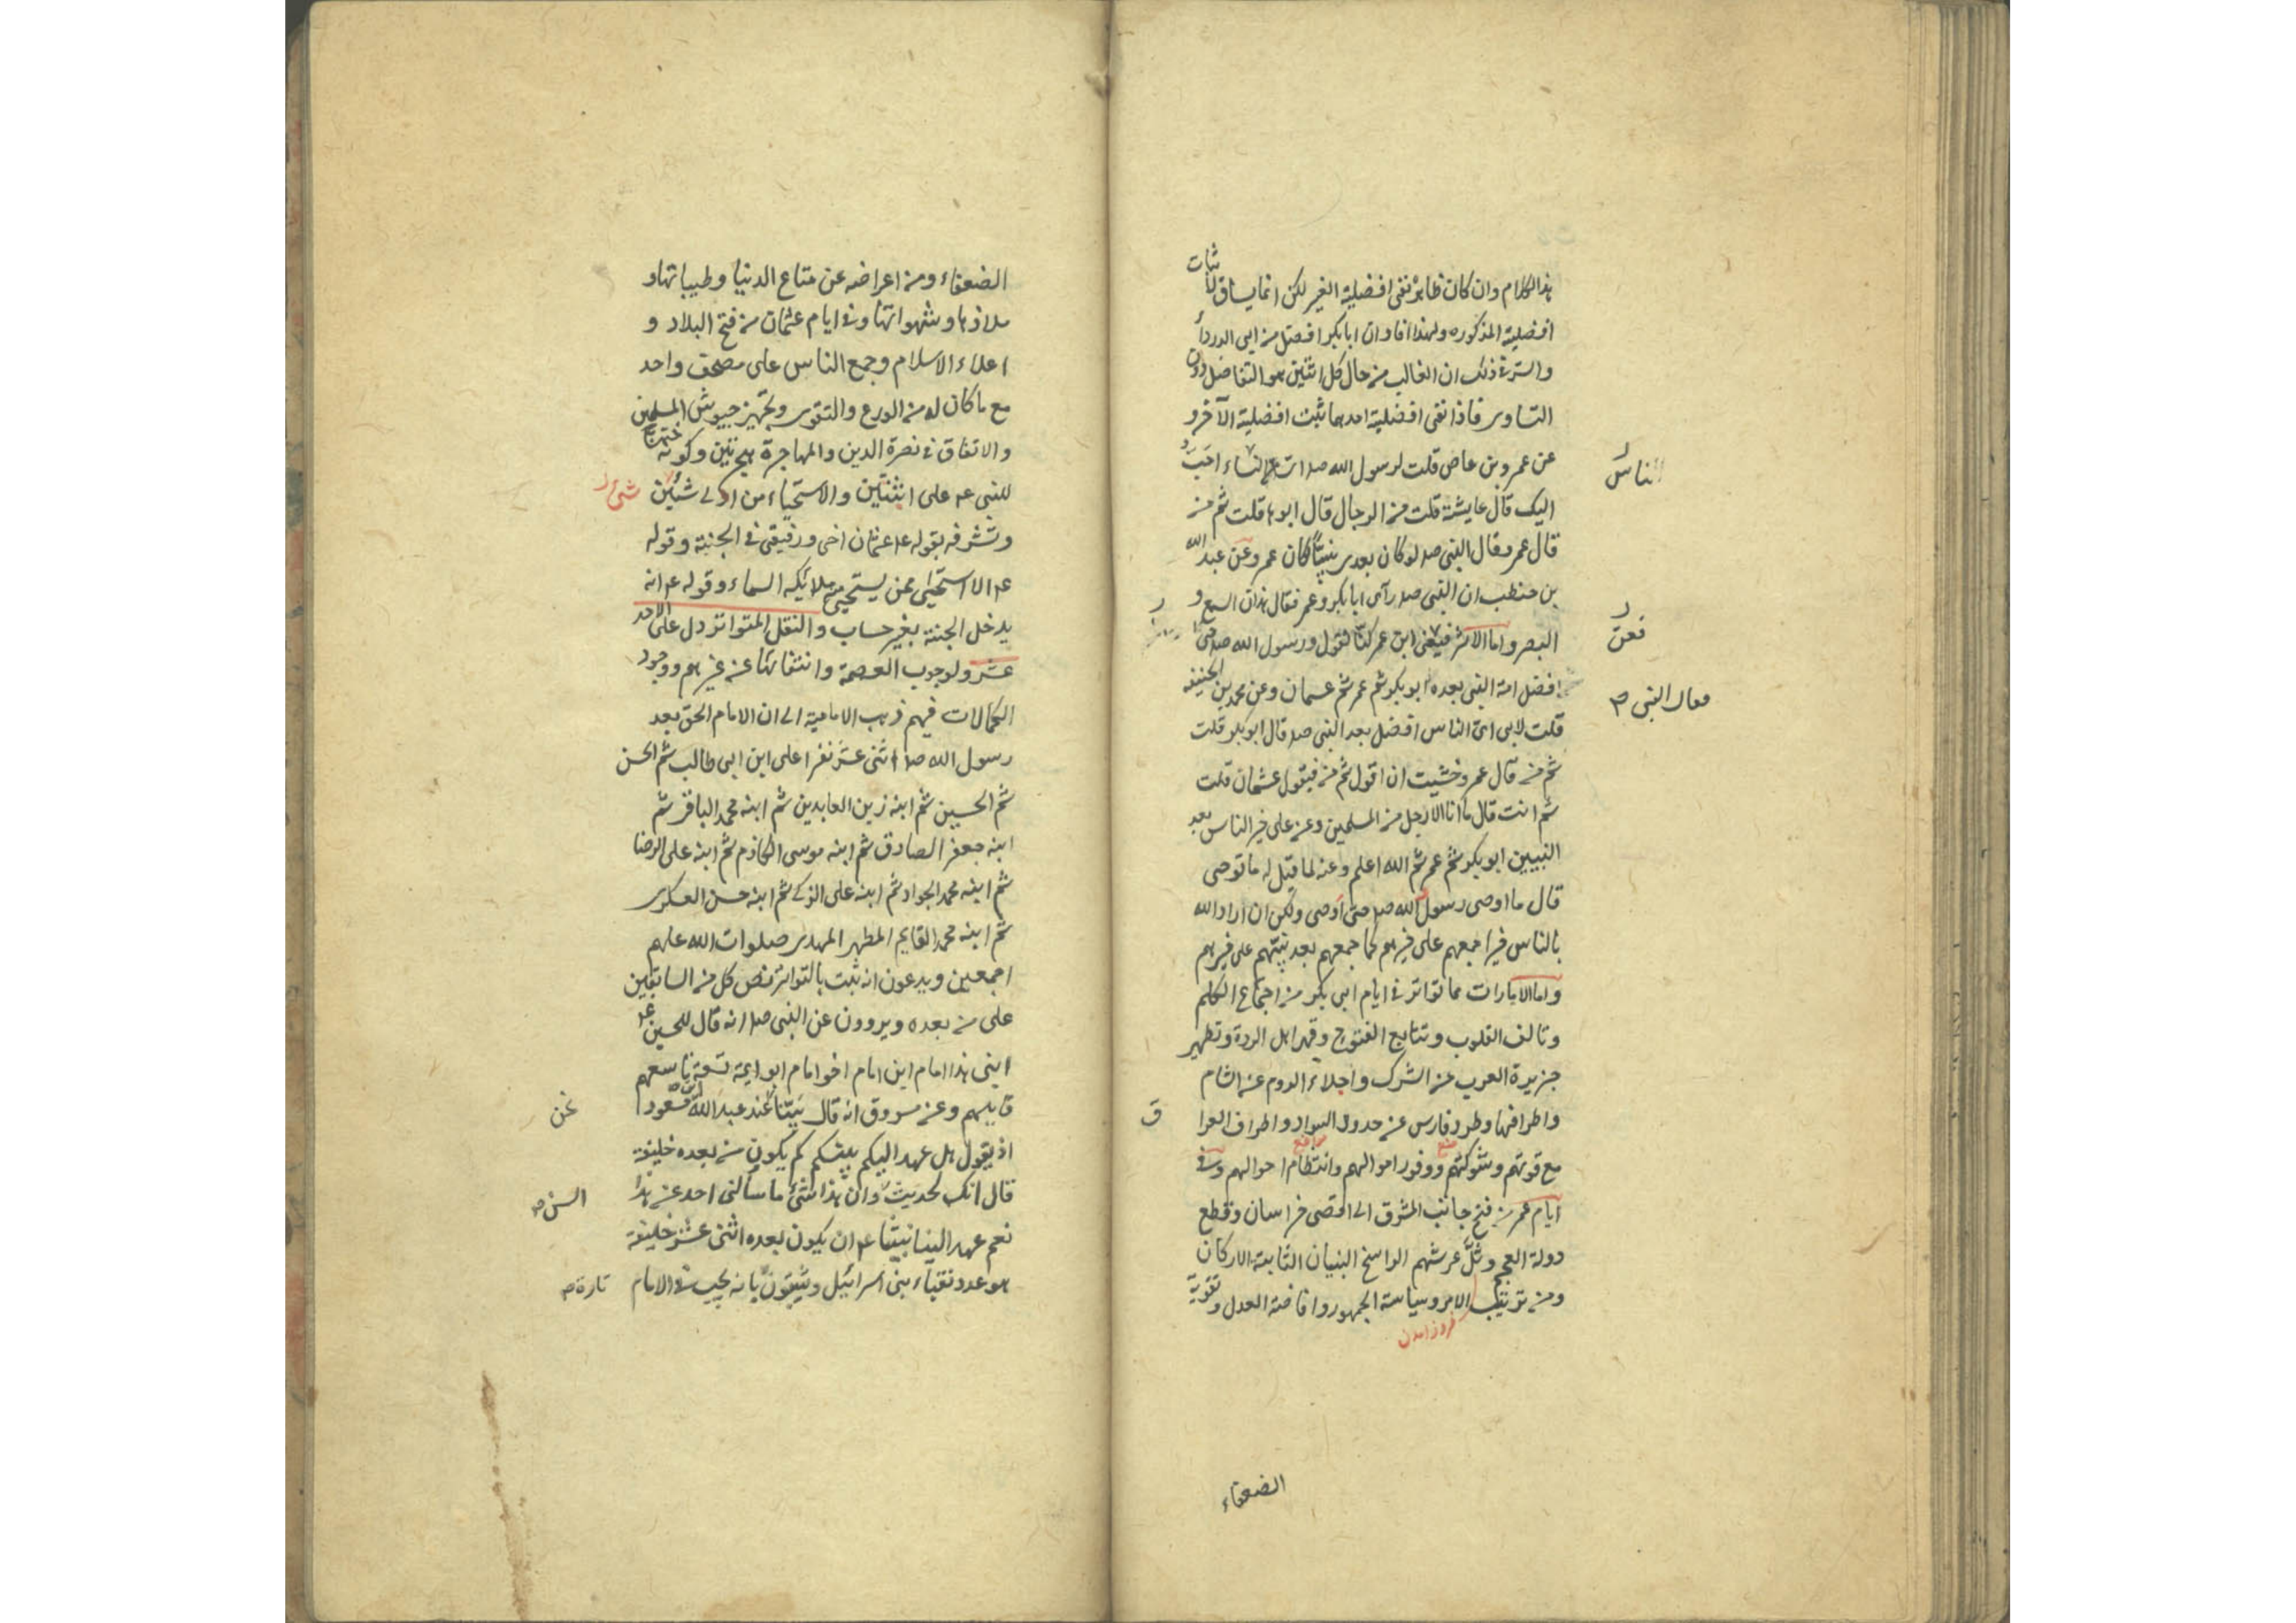 هذا الكلام وان كان ظاهره نفى افضلية الغير لكن انما يساق لاثبات
افضلية المذكوره ولهذا افاد ان ابا بكر افضل من ابى الدرداء
والسر فى ذلك ان الغالب من حال كل اثنين هو التفاضل دون
التساوى فاذا نفى افضلية احدهما ثبت افضلية الآخر و
عن عمرو بن عاص قلت لرسول الله صلم اى النساء احب
الناس
اليك قال عايشة قلت من الرجال قال ابوها قلت ثم من
قال عمر وقال النبى صلم لو كان بعدى نبيا لكان عمر وعن عبد الله
بن حنطب ان النبى صلم رآى ابا بكر وعمر فقال هذان السمع و
البصر واما الاثر فعن ابن عمر كنا نقول ورسول الله صلم حى
فعن
افضل امة النبى بعده ابو بكر ثم عمر ثم عثمان وعن محمد بن الحنيفه
قلت لابى اى الناس افضل بعد النبى صلم قال ابو بكر قلت
ثم من قال عمر وخشيت ان اقول ثم من فيقول عثمان قلت
ثم انت قال ما انا الا رجل من المسلمين وعن على خير الناس بعد
النبيين ابو بكر ثم عمر ثم الله اعلم وعنه لما قيل له ما توصى
قال ما اوصى رسول الله صلم حتى اوصى ولكن ان اراد الله
بالناس خيرا جمعهم على خيرهم كما جمعهم بعد نبيهم على خيرهم
واما الامارات فما تواتر فى ايام ابى بكر من اجتماع الكلم
وتالف القلوب وتتابع الفتوح وقهر اهل الردة وتطهير
جزيرة العرب عن الشرك واجلاء الروم عن الشام
واطرافها وطرد فارس عن حدود السواد واطراف العرا
ق
مع قوتهم وشوكتهم ووفور اموالهم وانتظام احوالهم وفى
ايام عمر من فتح جانب المشرق الى اقصى خراسان وقطع
دولة العجم وثل عرشهم الراسخ البنيان الثابتة الاركان
ومن ترتيب الامر وسياسة الجمهور وافاضة العدل وتقوية
الضعفاء
الضعفاء ومن اعراضه عن متاع الدنيا وطيباتها و
ملاذها وشهواتها وفى ايام عثمان من فتح البلاد و
اعلاء الاسلام وجمع الناس على مصحف واحد
مع ما كان له من الورع والتقوى وتجهيز جيوش المسلمين
والانفاق فى نصرة الدين والمهاجرة هجرتين وكونه ختنا
للنبى عم على اثنتين والاستحياء من ادنى شيئين
وتشرفه بقوله عم عثمان اخى ورفيقى فى الجنة وقوله
عم الا استحيى ممن يستحيى منه ملائكه السماء وقوله عم انه
يدخل الجنة بغير حساب والنقل المتواتر دل على الاحد
عشر ولوجوب العصمة وانتفائها عن غيرهم ووجود
الكمالات فيهم ذهب الامامية الى ان الامام الحق بعد
رسول الله صلم اثنى عشر نفرا على ابن ابى طالب ثم الحسن
ثم الحسين ثم ابنه زين العابدين ثم ابنه محمد الباقر ثم
ابنه جعفر الصادق ثم ابنه موسى الكاظم ثم ابنه على الرضا
ثم ابنه محمد الجواد ثم ابنه على الزكى ثم ابنه حسن العسكرى
ثم ابنه محمد القايم المطهر المهدى صلوات الله عليهم
اجمعين ويدعون انه ثبت بالتواتر نص كل من السابقين
على من بعده ويروون عن النبى صلم انه قال للحسين عم
ابنى هذا امام ابن امام اخو امام ابو ايمة تسعة تاسعهم
قايمهم وعن مسروق انه قال بينا عند عبد الله ابن مسعود
نحن
اذ يقول هل عهد اليكم نبيكم كم يكون من بعده خليفة
قال انك لحديث وان هذا شىء ما سألنى احد عن هذا
السن
نعم عهد الينا نبينا عم ان يكون بعده اثنى عشر خليفة
هو عدد نقباء بنى اسرائيل ويثبتون بانه يجب فى الامام
تارة